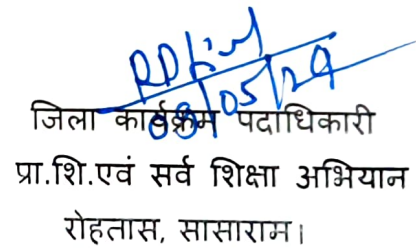 जिला कार्यक्रम पदाधिकारी
प्रा.शि.एवं सर्व शिक्षा अभियान
रोहतास, सासाराम।